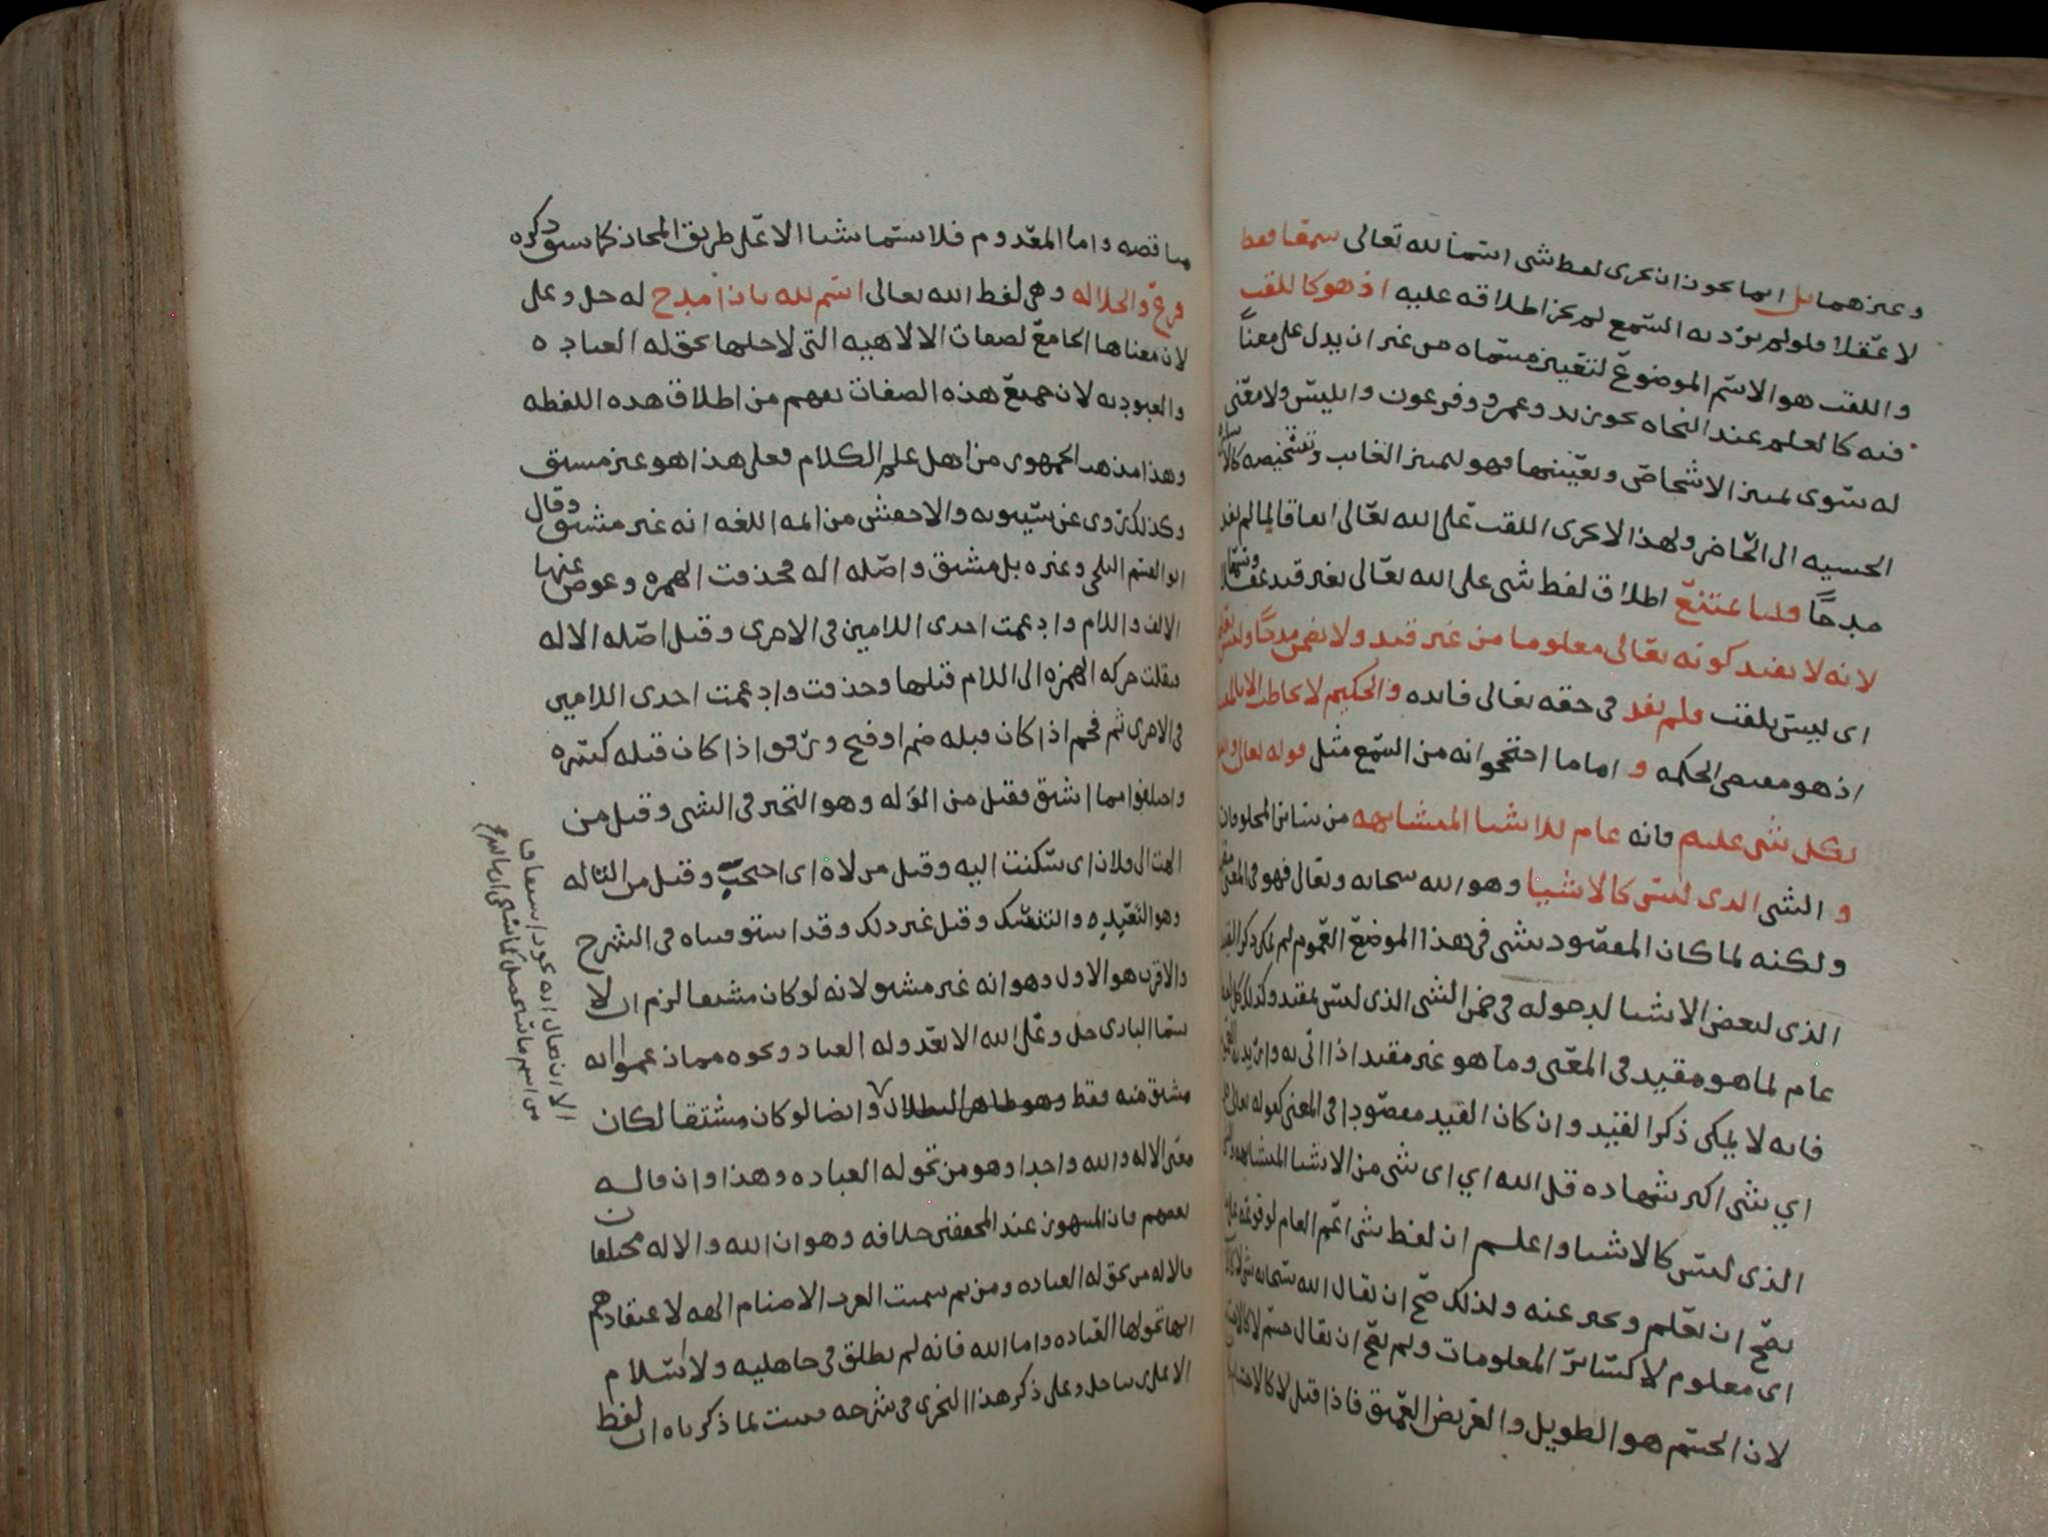 وغيرهما بل انما يجوز ان يجرى لفظ شى اسما لله تعالى سمعا فقط
لا عقلا فلو لم يرد به السمع لم يجز اطلاقه عليه اذ هو كاللقب
واللقب هو الاسم الموضوع لتعيين مسماه من غير ان يدل على معنًا
فيه كالعلم عند النحاه نحو زيد وعمرو وفرعون وابليس ولا معنى
له سوى تمييز الاشخاص وتعيينها فهو لتمييز الغايب وتشخيصه كالاشاره
الحسيه الى الحاضر ولهذا لا يجرى اللقب على الله تعالى اتفاقا لما لم يفد
مدحًا قلنا يمتنع اطلاق لفظ شى على الله تعالى بغير قيد عقلا وسمعا
لانه لا يفيد كونه تعالى معلوما من غير قيد ولا تضمن مدحًا وليس بعلم
اى ليس بلقب فلم يفد فى حقه تعالى فايده والحكيم لا يخاطب الا بالمفيد
اذ هو مقتضى الحكمه و اما ما احتجوا به من السمع مثل قوله تعالى والله
بكل شى عليم فانه عام للاشيا المتشابهه من ساير المخلوقات
و الشى الذى ليس كالاشيا وهو الله سبحانه وتعالى فهو فى المعنى مقيد
ولكنه لما كان المقصود بشى فى هذا الموضع العموم لم يمكن ذكر القيد
الذى لبعض الاشيا لدخوله فى ضمن الشى الذى ليس بمقيد وكذلك كل لفظ
عام لما هو مقيد فى المعنى وما هو غير مقيد اذا اتى به واريد به العموم
فانه لا يمكن ذكر القيد وان كان القيد مقصودا فى المعنى كقوله تعالى قل
اي شى اكبر شهاده قل الله اي اى شى من الاشيا المتشابهه والشى
الذى ليس كالاشيا واعلم ان لفظ شى اعم العام لوقوعه على ما
يصح ان يعلم ويخبر عنه ولذلك صح ان يقال الله سبحانه شى لا كالاشيا
اى معلوم لا كساير المعلومات ولم يصح ان يقال جسم لا كالاجسام
لان الجسم هو الطويل والعريض العميق فاذا قيل لا كالاجسام
مناقضه واما المعدوم فلا يسما شيا الا على طريق المجاز كما سبق ذكره
فرع والجلاله وهى لفظ الله تعالى اسم لله بازا مدح له جل وعلى
لان معناها الجامع لصفات الالاهيه التى لاجلها تحق له العباده
والعبوديه لان جميع هذه الصفات تفهم من اطلاق هذه اللفظه
وهذا مذهب الجمهور من اهل علم الكلام فعلى هذا هو غير مشتق
وكذلك روى عن سيبويه والاخفش من ايمه اللغه انه غير مشتق وقال
ابو القسم البلخى وغيره بل مشتق واصله اله فحذفت الهمزه وعوض عنها
الالف واللام وادغمت احدى اللامين فى الاخرى وقيل اصله الاله
فنقلت حركه الهمزه الى اللام قبلها وحذفت وادغمت احدى اللامين
فى الاخرى ثم فخم اذا كان قبله ضم او فتح ورقق اذا كان قبله كسره
واختلفوا مما اشتق فقيل من الوله وهو التحير فى الشى وقيل من
الهت الى فلان اى سكنت اليه وقيل من لاه اى احتجب وقيل من التاله
وهو التعبد والتنسك وقيل غير ذلك وقد استوفيناه فى الشرح
والاقرب هو الاول وهو انه غير مشتق لانه لو كان مشتقا لزم ان لا
يسما البارى جل وعلى الله الا بعد وله العباد ونحوه مما زعموا انه
مشتق منه فقط وهو ظاهر البطلان وايضا لو كان مشتقا لكان
معنى الاله والله واحدا وهو من تحق له العباده وهذا وان قال به
بعضهم فان المشهور عند المحققين خلافه وهو ان الله والاله مختلفان
فالاله من تحق له العباده ومن ثم سميت العرب الاصنام الهه لاعتقادهم
انها تحق لها العباده واما الله فانه لم يطلق فى جاهليه ولا اسلام
الا على ربنا جل وعلى ذكر هذا النجرى فى شرحه فثبت بما ذكرناه ان لفظ
الا ان يقال انه يجوز اشتقاق
من اسم ما سيحصل